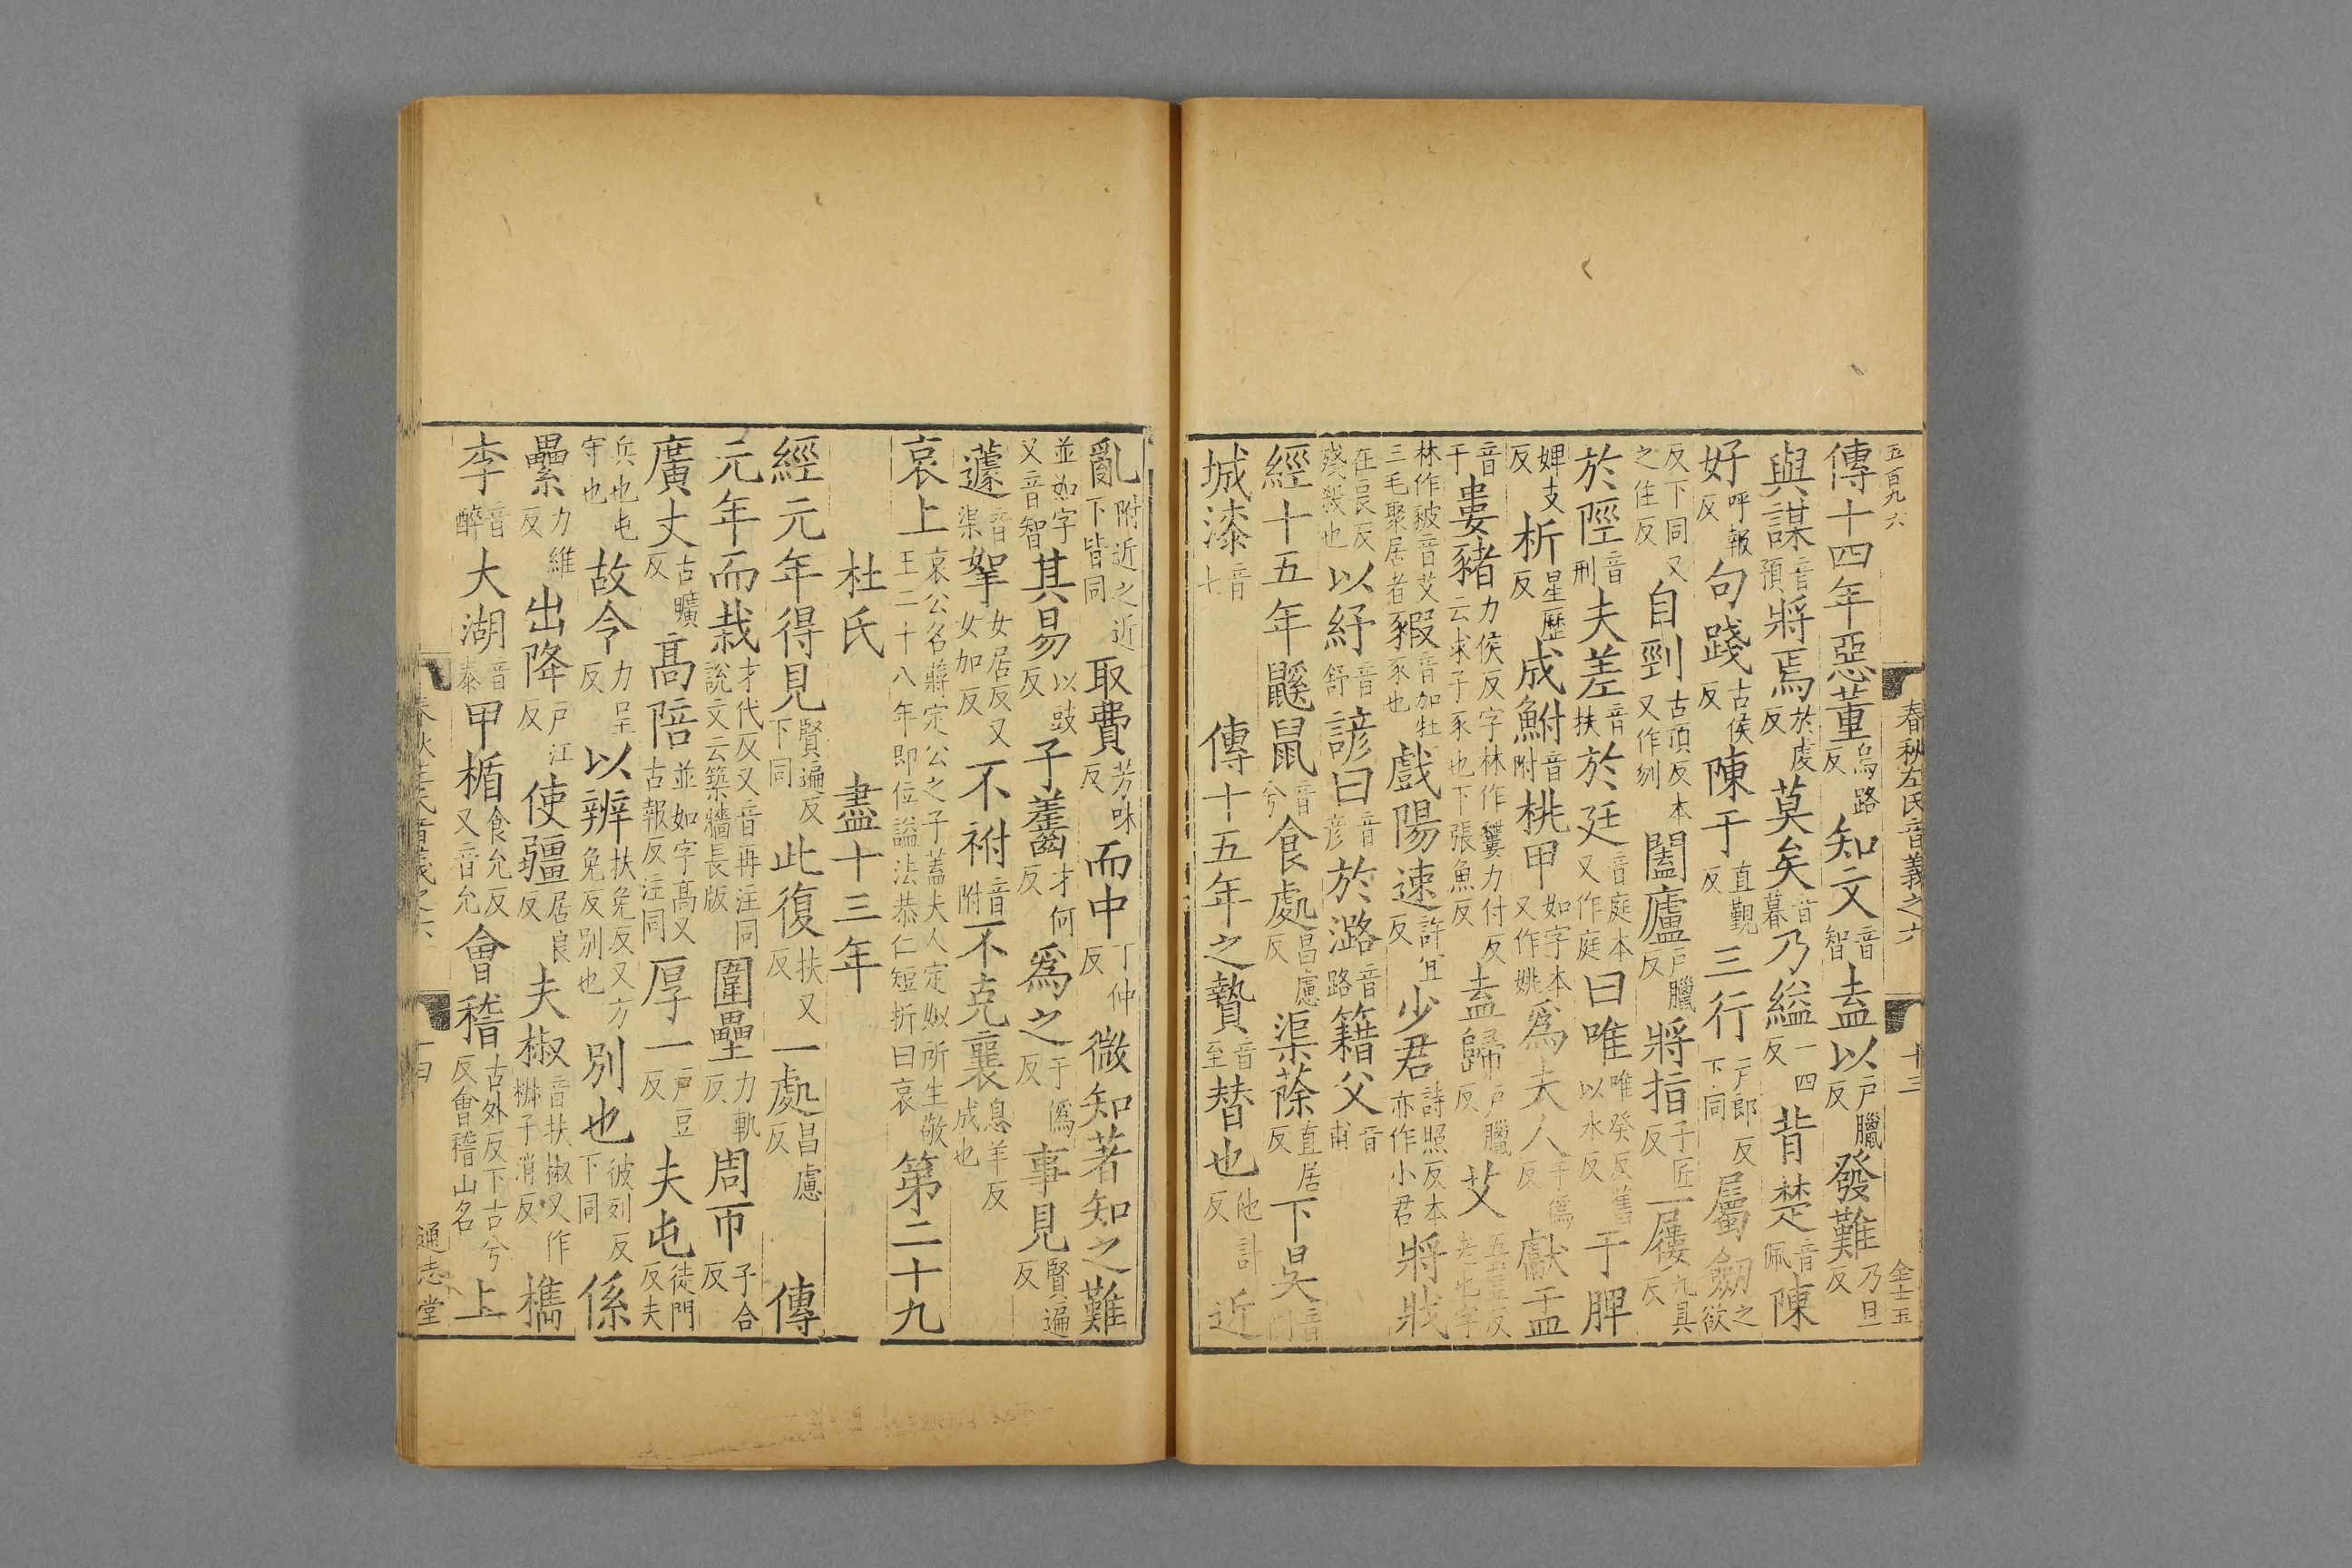 五百九六
春秋左氏音義之六 十三 金士玉
傳十四年惡董烏路反知文音智盍以戶臘反發難乃旦反
與謀音預將焉於虔反莫矣音暮乃縊一四反背楚音佩陳
好呼報反句踐古侯反陳于直覲反三行戶郎反下同屬劒之欲
反下同又之住反自剄古頂反本又作刎闔廬戶臘反將指子匠反一屨九具反
於陘音刑夫差音扶於廷音庭本又作庭曰唯唯癸反舊以水反于脾
婢支反析星歷反成鮒音附桃甲如字本又作姚爲夫人于僞反獻盂
音于婁豬力侯反字林作䝏力付反云求子豕也下張魚反盍歸戶臘反艾五蓋反老也字
林作䝘音艾三毛聚居者豭音加牡豕也戲陽速許宜反少君詩照反本亦作小君將戕
在良反殘殺也以紓音舒諺曰音彥於潞音路籍父音甫
經十五年鼷鼠音兮食處昌慮反渠蒢直居反下昃音
城漆音七 傳十五年之贄音至替也他計反近
亂附近之近下皆同取費芳味反而中丁仲反微知著知之難
並如字又音智其易以豉反子齹才何反爲之于僞反事見賢遍反
蘧音渠挐女居反又女加反不祔音附不克襄息羊反成也
哀上哀公名蔣定公之子蓋夫人定姒所生敬王二十八年即位謚法恭仁短折曰哀第二十九
杜氏 盡十三年
經元年得見賢遍反下同此復扶又反一處昌慮反 傳
元年而栽才代反又音再注同說文云築牆長版圍壘力軌反周帀子合反
廣丈古曠反高陪並如字高又古報反注同厚一戶豆反夫屯徒門反夫
兵也屯守也故令力呈反以辨扶免反又方免反別也別也彼列反下同係
纍力維反出降戶江反使疆居良反夫椒音扶椒又作㮑子消反檇
李音醉大湖音泰甲楯食允反又音允會稽古外反下古兮反會稽山名上
春秋左氏音義之六 十四 通志堂